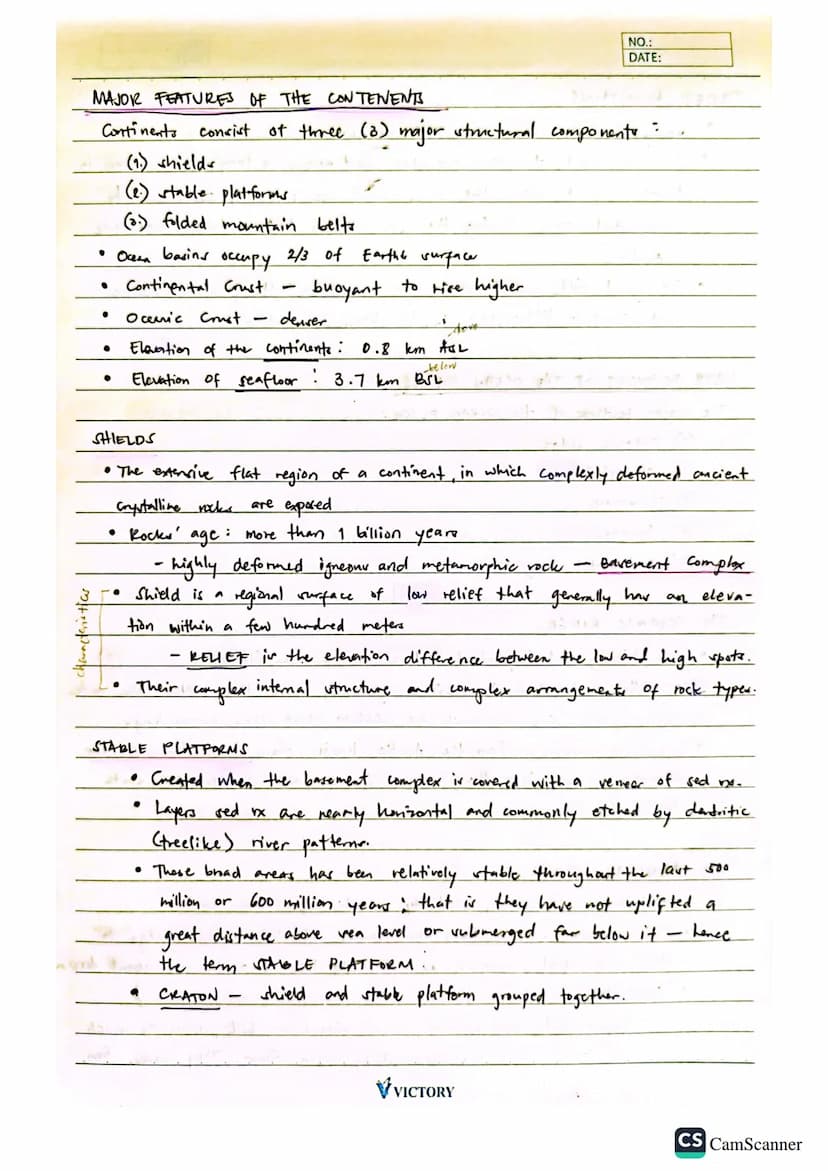 NO.:
DATE:
MAJOR FEATURES OF THE CONTENENTS
Continents consist of three (3) major structural components :
(1.) shields
(2.) stable platforms
(3.) folded mountain belts
• Ocean basins occupy 2/3 of Earth's surface
• Continental Crust — buoyant to rise higher
• Oceanic Crust — denser
above
• Elevation of the continents : 0.8 km ASL
below
• Elevation of seafloor : 3.7 km BSL
SHIELDS
• The extensive flat region of a continent, in which complexly deformed ancient
crystalline rocks are exposed
• Rocks' age : more than 1 billion years
- highly deformed igneous and metamorphic rock — Basement Complex
characteristics
• Shield is a regional surface of low relief that generally has an eleva-
tion within a few hundred meters
- RELIEF is the elevation difference between the low and high spots.
• Their complex internal structure and complex arrangements of rock types.
STABLE PLATFORMS
• Created when the basement complex is covered with a veneer of sed rx.
• Layers sed rx are nearly horizontal and commonly etched by dendritic
(treelike) river patterns.
• These broad areas has been relatively stable throughout the last 500
million or 600 million years ; that is they have not uplifted a
great distance above sea level or submerged far below it — hence
the term STABLE PLATFORM.
• CRATON — shield and stable platform grouped together.
VICTORY
CS CamScanner